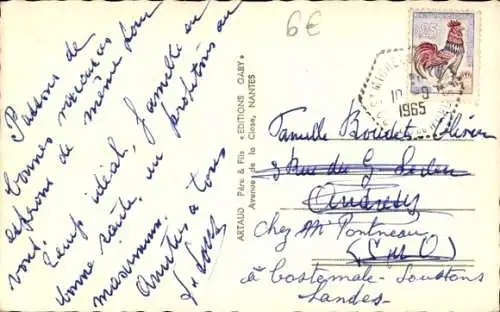 6€
Passons de
bonnes vacances
espérons de même pour
vous.
Temps idéal, famille en
bonne santé, en profitons au
maximum.
Amitiés à tous
ARTAUD Père & Fils «EDITIONS GABY»
Avenue de la Close, NANTES
0,25
10-9
1965
Famille Boudet-Olivier
3 Rue du G. Leduc
Andrésy
chez Mr Pontneau
(S et O)
à Costemale-Soustons
Landes